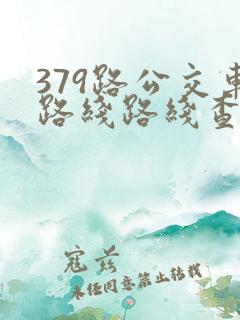 379路公交车
路线路线查
寇兹
未经同意禁止转载